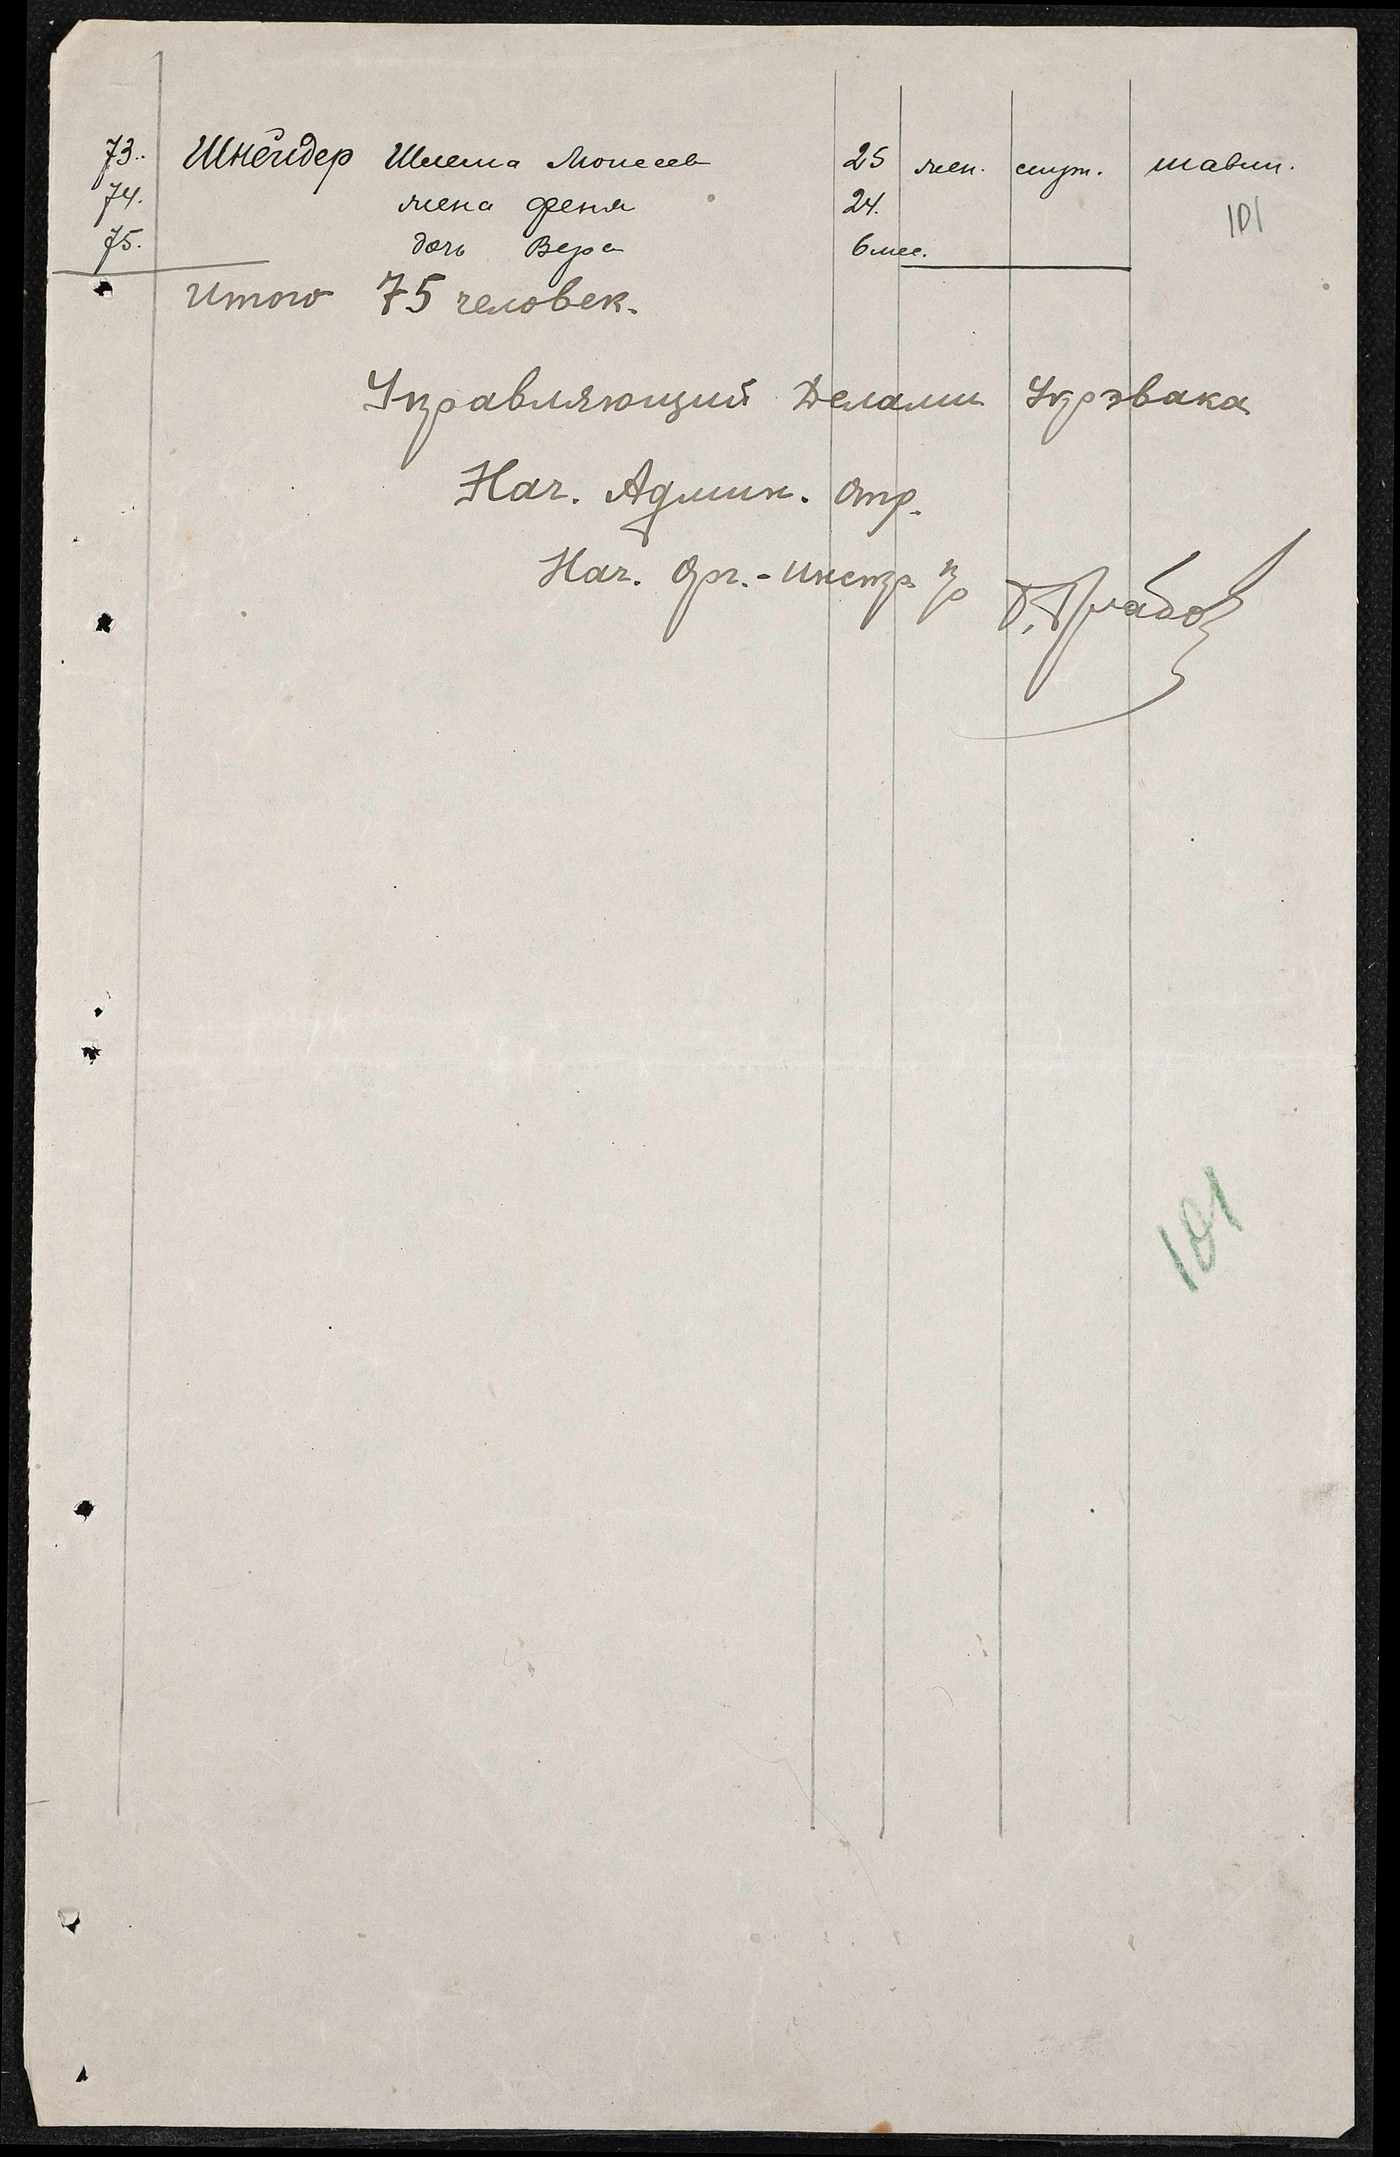 73. Шнейдер Шлема Моисеев 25 жен. служ. шавли.
101
74. жена Феня 24.
75. дочь Вера 6 мес.
Итого 75 человек.
Управляющий Делами Укрэвака
Нач. Админ. Отр.
Нач. Орг.-Инстр
101